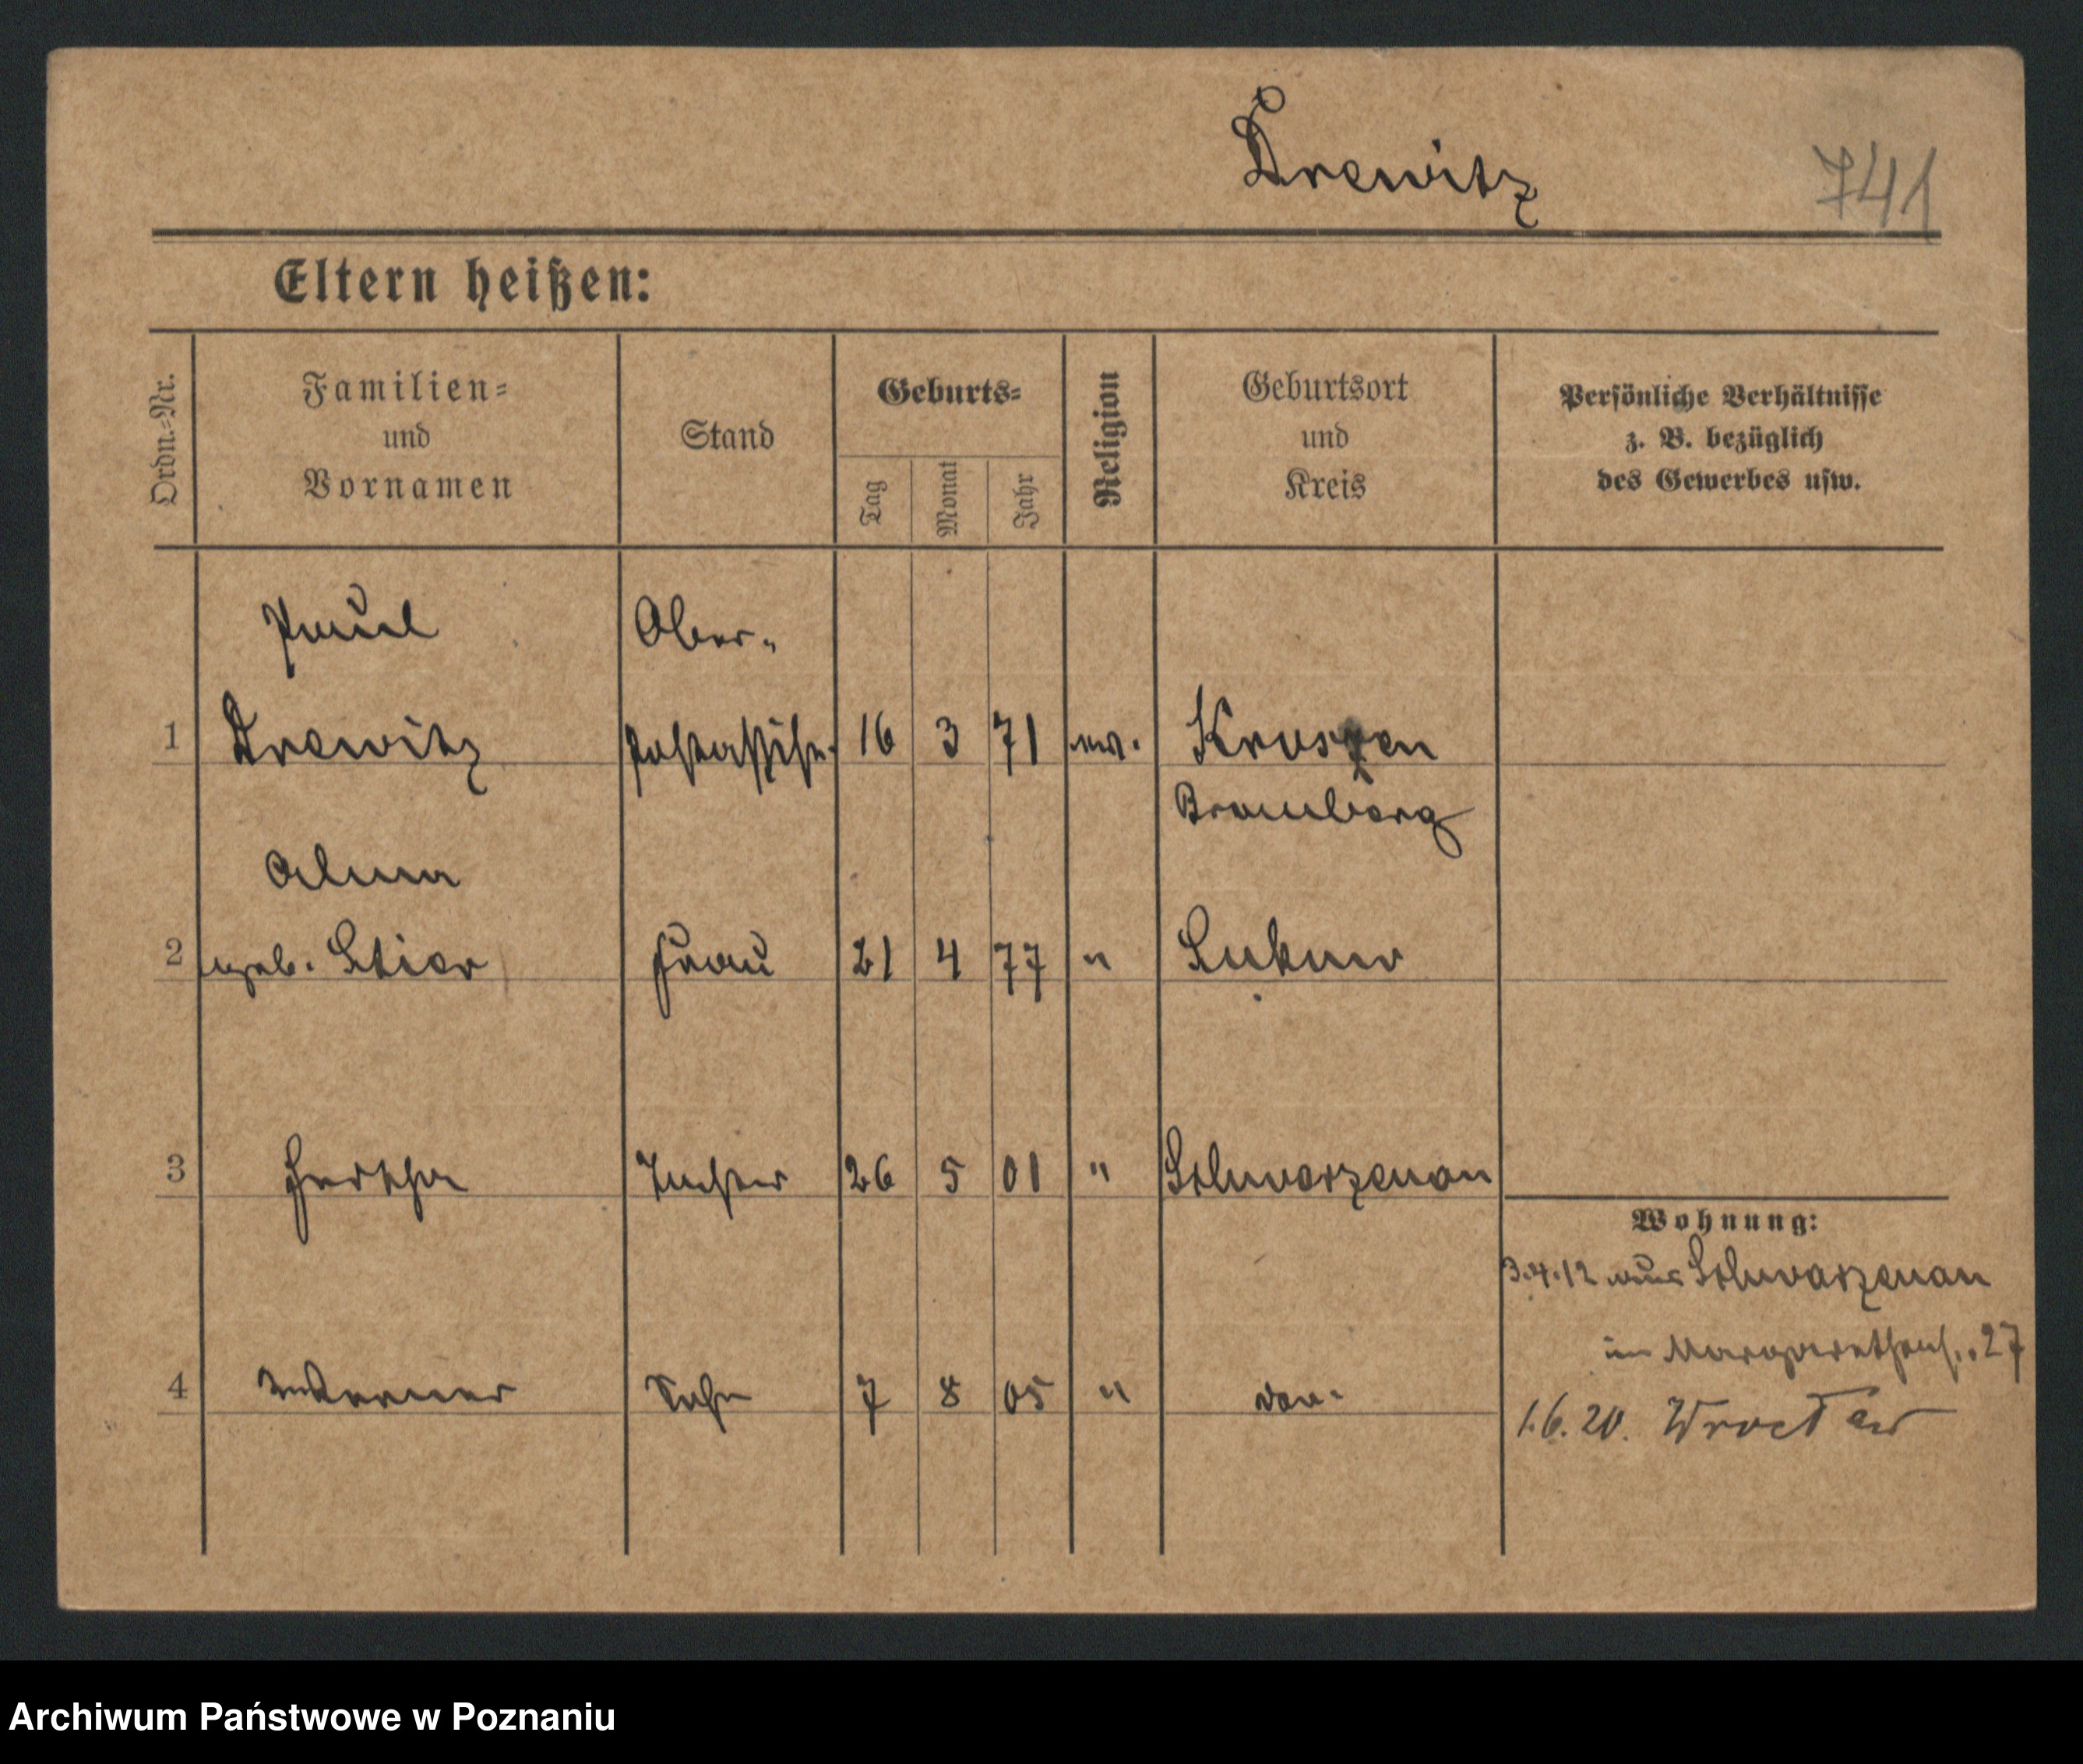 Drewitz 741
Eltern heißen:
Ordn.-Nr.
Familien-
und
Vornamen
Stand
Geburts-
Tag
Monat
Jahr
Religion
Geburtsort
und
Kreis
Persönliche Verhältnisse
z. B. bezüglich
des Gewerbes usw.
Paul Ober-
1 Drewitz 16 3 71 ev. Kroszen
Bromberg
Alma
2 geb. Stier Frau 21 4 77 "
3 Hertha Tochter 26 5 01 " Schwarzenau
Wohnung:
3.4.12 aus Schwarzenau
27
4 Werner Sohn 7 8 05 "
1.6.20. Wrocław
Archiwum Państwowe w Poznaniu